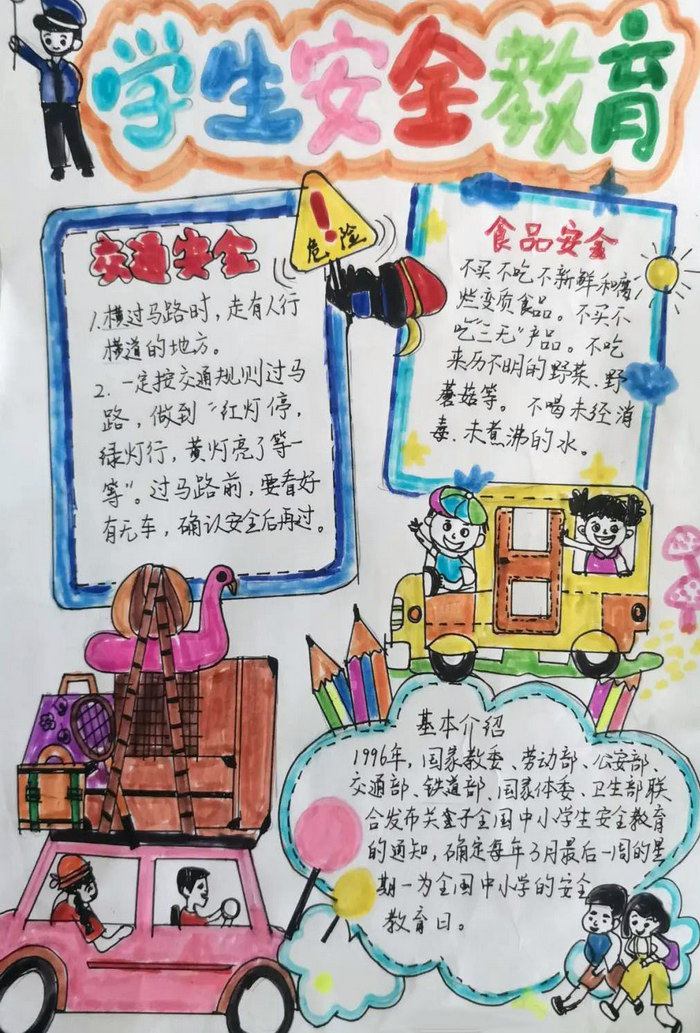 学生安全教育
交通安全
1.横过马路时,走有人行
横道的地方。
2.一定按交通规则过马
路,做到“红灯停,
绿灯行,黄灯亮了等一
等”。过马路前,要看好
有无车,确认安全后再过。
危险
食品安全
不买不吃不新鲜和腐
烂变质食品。不买不
吃“三无”产品。不吃
来历不明的野菜、野
蘑菇等。不喝未经消
毒、未煮沸的水。
基本介绍
1996年,国家教委、劳动部、公安部、
交通部、铁道部、国家体委、卫生部联
合发布关于全国中小学生安全教育
的通知,确定每年3月最后一周的星
期一为全国中小学的安全
教育日。